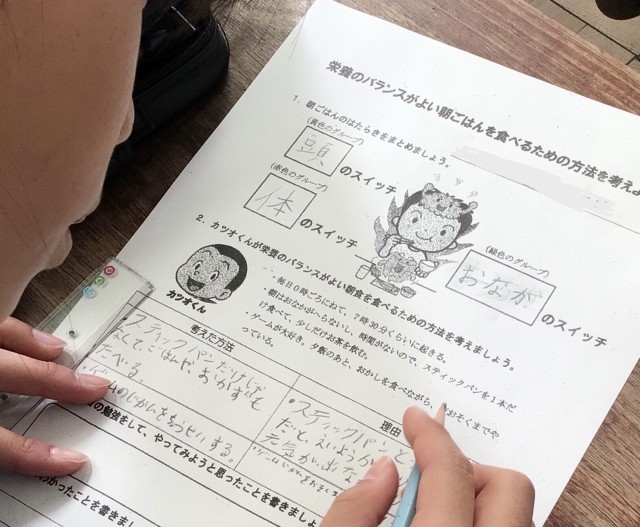 栄養のバランスがよい朝ごはんを食べるための方法を考えよ
1. 朝ごはんのはたらきをまとめましょう。
(黄色のグループ)
頭
のスイッチ
(赤色のグループ)
体
のスイッチ
(緑色のグループ)
おなか
のスイッチ
2. カツオくんが栄養のバランスがよい朝食を食べるための方法を考えましょう。
カツオくん
・毎日0時ごろにねて、7時30分くらいに起きる。
朝はおなかがへらないし、時間がないので、スティックパンを1本だ
け食べて、少しだけお茶を飲む。
・ゲームが大好き。夕飯のあと、おかしを食べながら、おそくまでや
っている。
考えた方法
スティックパンだけじゃ
なくて、ごはんや、おかずを
たべる。
ゲームのじかんを
する。
理由
・スティックパン
だと、えいよう
元気が出な
の勉強をして、やってみようと思ったことを書きましょ
わかったことを書きまし